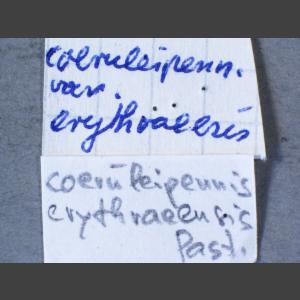 coeruleipenn.
var.
erythraeensis
coeruleipennis
erythraeensis
Past.